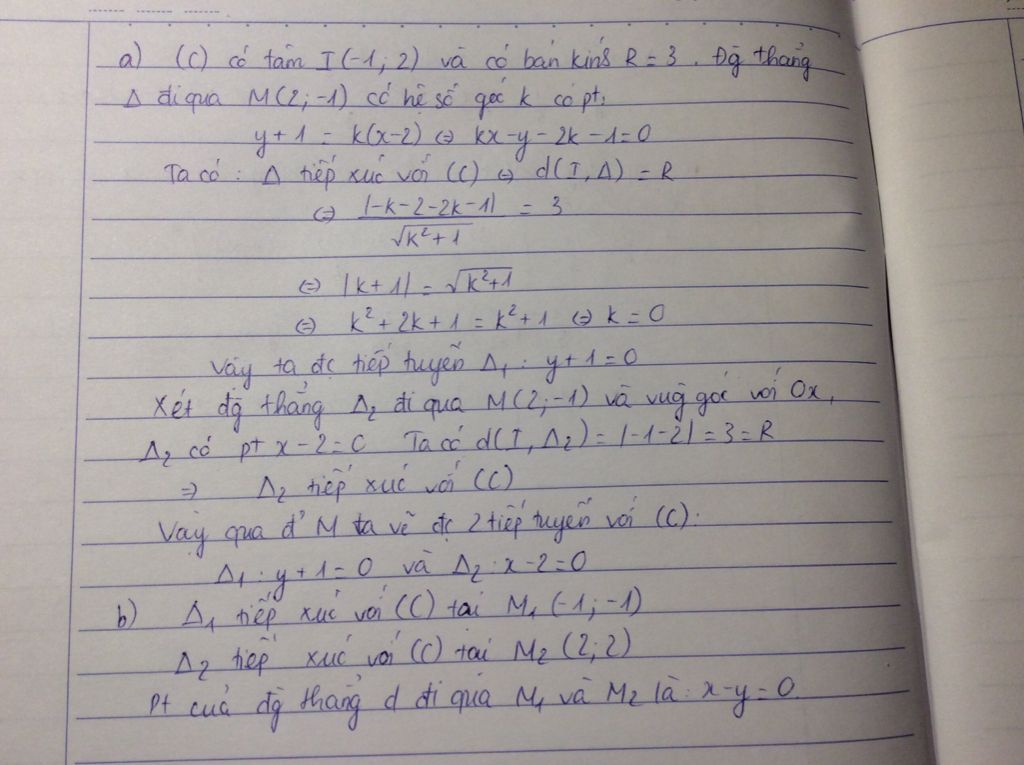 a) (C) có tâm I(-1; 2) và có bán kính R = 3. Đg thẳng
Δ đi qua M(2; -1) có hệ số góc k có pt:
y + 1 = k(x-2) ⇔ kx - y - 2k - 1 = 0
Ta có: Δ tiếp xúc với (C) ⇔ d(I, Δ) = R
⇔ |-k-2-2k-1| / √(k²+1) = 3
⇔ |k+1| = √(k²+1)
⇔ k² + 2k + 1 = k² + 1 ⇔ k = 0
Vậy ta đc tiếp tuyến Δ₁: y + 1 = 0
Xét đg thẳng Δ₂ đi qua M(2; -1) và vug góc với Ox,
Δ₂ có pt x - 2 = 0 Ta có d(I, Δ₂) = |-1-2| = 3 = R
⇒ Δ₂ tiếp xúc với (C)
Vậy qua đ' M ta vẽ đc 2 tiếp tuyến với (C):
Δ₁: y + 1 = 0 và Δ₂: x - 2 = 0
b) Δ₁ tiếp xúc với (C) tại M₁(-1; -1)
Δ₂ tiếp xúc với (C) tại M₂(2; 2)
Pt của đg thẳng d đi qua M₁ và M₂ là: x - y = 0.